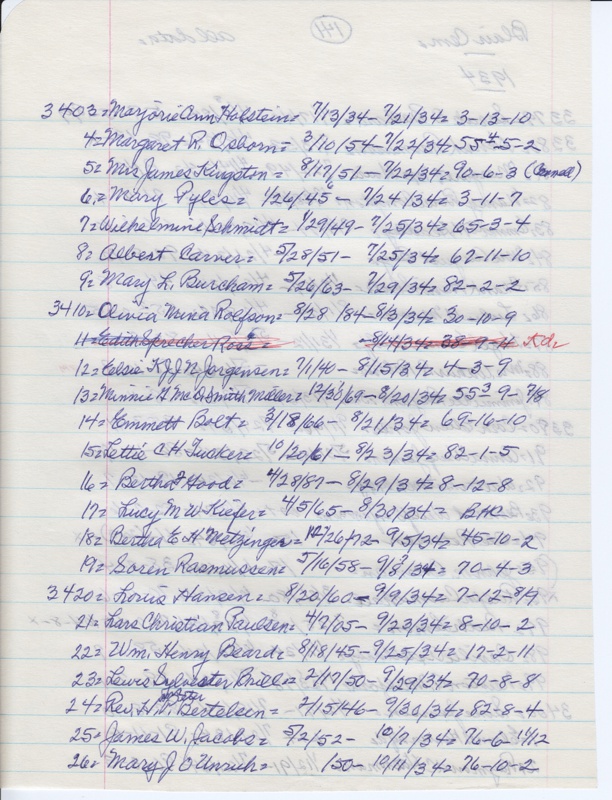 3403= Marjorie Ann Holstein= 7/13/34- 7/21/34= 3-13-10
4= Margaret R. Osborn= 3/10/54- 7/22/34= 55-5-2
5= Mrs James Kingston = 8/17/51 - 7/22/34= 90-6-3
6= Mary Pyles= 1/26/45- 7/24/34= 3-11-7
7= Wilhelmine Schmidt= 1/29/49- 7/25/34= 65-3-4
8= Albert Carver= 5/28/51- 7/25/34= 62-11-10
9= Mary L. Burcham= 5/26/63- 7/29/34= 82-2-2
3410= Olivia Mina Rolfson= 8/28/84-8/3/34= 30-10-9
11= Edith Sprecher Rose= -8/14/34= 38-9-4
12= Elsie K J J N Jorgensen= 7/1/40- 8/15/34= 4-3-9
13= Minnie G McQ Smith Miller= 12/30/69-8/20/34= 55-9-7/8
14= Emmett Bolt= 3/18/66- 8/21/34= 69-16-10
15= Lettie C H Tucker= 10/20/61- 8/23/34= 82-1-5
16= Bertha Hood= 4/28/87- 8/29/34= 8-12-8
17= Lucy M W Kiefer= 4/5/65- 8/20/34=
18= Bertha E H Metzinger= 12/26/72- 9/5/34= 45-10-2
19= Soren Rasmussen= 5/16/58- 9/8/34= 70-4-3
3420= Louis Hansen= 8/20/60- 9/9/34= 7-12-8/9
21= Lars Christian Paulsen= 4/7/05- 9/23/34= 8-10-2
22= Wm. Henry Beard= 8/18/45- 9/25/34= 17-2-11
23= Lewis Sylvester Brill= 2/17/50- 9/29/34= 70-8-8
24= Rev. H Bertelsen= 2/15/46- 9/30/34= 82-8-4
25= James W. Jacobs= 5/2/52- 10/7/34= 76-6-11/12
26= Mary J O Unruh= /50- 10/11/34= 76-10-2